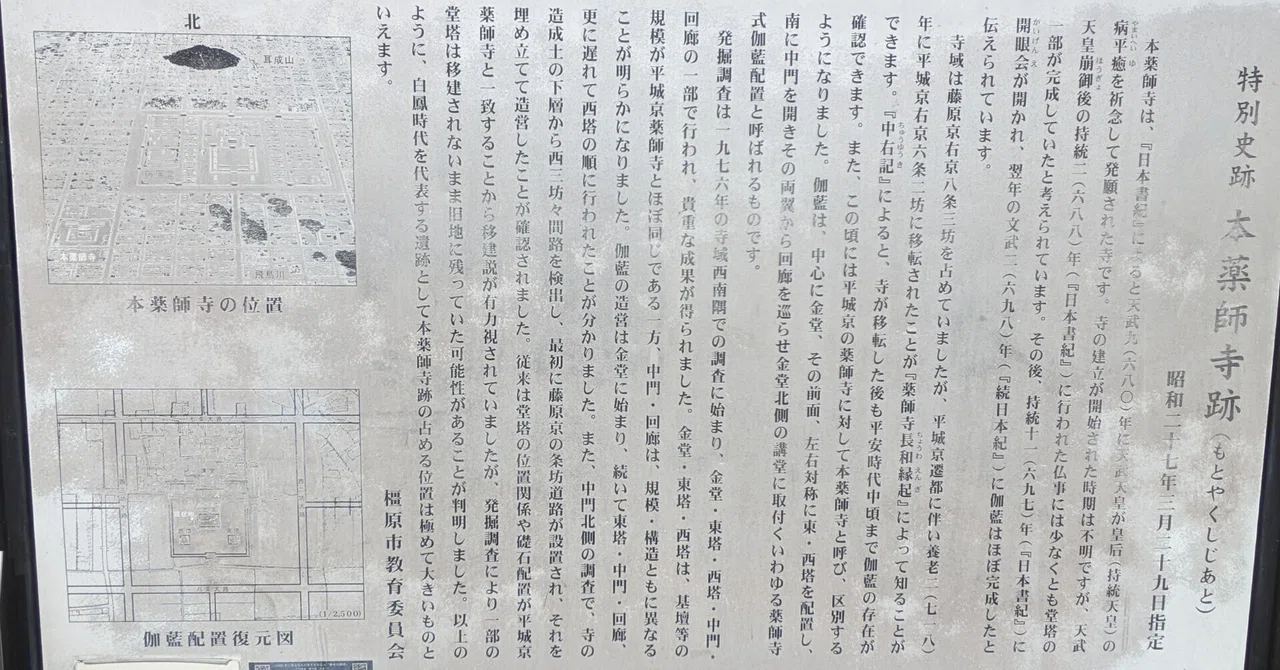 特別史跡 本薬師寺跡(もとやくしじあと)
昭和二十七年三月二十九日指定
本薬師寺は、『日本書紀』によると天武九(六八〇)年に天武天皇が皇后(持統天皇)の
病平癒を祈念して発願された寺です。寺の建立が開始された時期は不明ですが、天武
やまいへいゆ
天皇崩御後の持統二(六八八)年(『日本書紀』)に行われた仏事には少なくとも堂塔の
ほうぎょ
一部が完成していたと考えられています。その後、持統十一(六九七)年(『日本書紀』)に
開眼会が開かれ、翌年の文武二(六九八)年(『続日本紀』)に伽藍はほぼ完成したと
かいげんえ
伝えられています。
寺域は藤原京右京八条三坊を占めていましたが、平城京遷都に伴い養老二(七一八)
年に平城京右京六条二坊に移転されたことが『薬師寺長和縁起』によって知ることが
ちょうわえんぎ
できます。『中右記』によると、寺が移転した後も平安時代中頃まで伽藍の存在が
ちゅうゆうき
確認できます。また、この頃には平城京の薬師寺に対して本薬師寺と呼び、区別する
ようになりました。伽藍は、中心に金堂、その前面、左右対称に東・西塔を配置し、
南に中門を開きその両翼から回廊を巡らせ金堂北側の講堂に取付くいわゆる薬師寺
式伽藍配置と呼ばれるものです。
発掘調査は一九七六年の寺域西南隅での調査に始まり、金堂・東塔・西塔・中門・
回廊の一部で行われ、貴重な成果が得られました。金堂・東塔・西塔は、基壇等の
規模が平城京薬師寺とほぼ同じである一方、中門・回廊は、規模・構造ともに異なる
ことが明らかになりました。伽藍の造営は金堂に始まり、続いて東塔・中門・回廊、
更に遅れて西塔の順に行われたことが分かりました。また、中門北側の調査で、寺の
造成土の下層から西三坊々間路を検出し、最初に藤原京の条坊道路が設置され、それを
埋め立てて造営したことが確認されました。従来は堂塔の位置関係や礎石配置が平城京
薬師寺と一致することから移建説が有力視されていましたが、発掘調査により一部の
堂塔は移建されないまま旧地に残っていた可能性があることが判明しました。以上の
ように、白鳳時代を代表する遺跡として本薬師寺跡の占める位置は極めて大きいものと
いえます。
橿原市教育委員会
北
耳成山
本薬師寺
飛鳥川
本薬師寺の位置
(1/2,500)
伽藍配置復元図